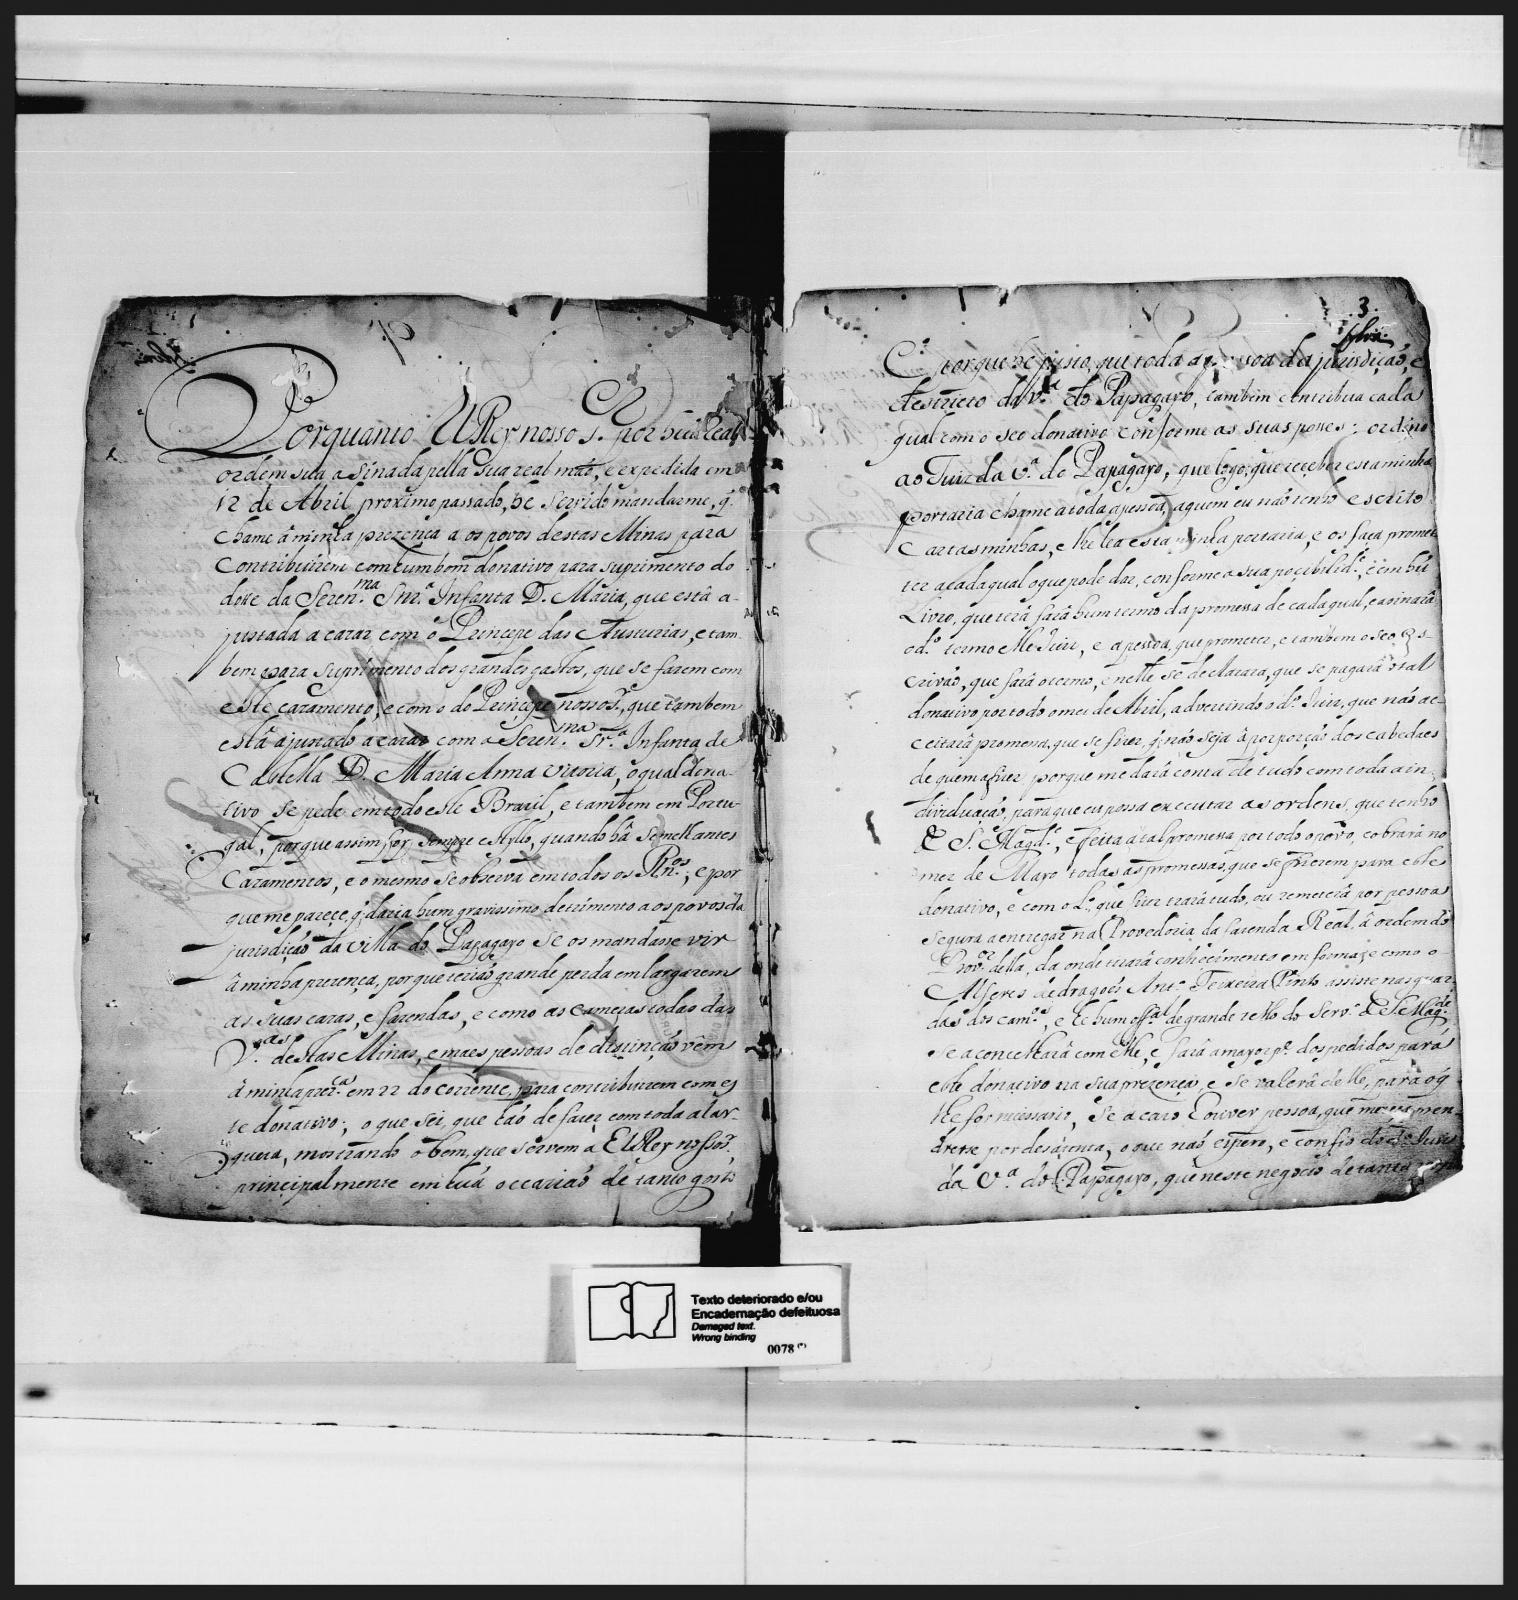 Porquanto ElRey nosso s.r por hũa Real
ordem sua asinada pella sua real mão, e expedida em
12 de Abril proximo passado, he servido mandarme, q̃
chame â minha prezença a os povos destas Minas para
contribuirem com hum bom donativo para suprimento do
dotte da Seren.ma Snr.a Infanta D. Maria, que està a-
justada a cazar com o Principe das Austurias, e tam-
bem para suprimento dos grandes gastos, que se fazem com
este cazamento, e com o do Principe nosso s.r, que tambem
està ajustado a cazar com a Seren.ma Sr.a Infanta de
Castella D. Maria Anna Vitoria, o qual dona-
tivo se pede em todo este Brazil, e tambem em Portu-
gal, porque assim foy sempre estyllo, quando hâ semelhantes
cazamentos, e o mesmo se observa em todos os Rn.os, e por
que me parece, q̃ daria hum gravissimo detrimento a os povos da
jurisdição da villa do Papagayo se os mandasse vir
â minha prezença, porque terião grande perda em largarem
as suas cazas, e fazendas, e como as cameras todas das
V.as destas Minas, e maes pessoas de distinção vêm
â minha prez.ca em 22 do corrente, para contribuirem com es
te donativo, o que sei, que hão de fazer com toda a lar-
gueza, mostrando o bem, que servem a ElRey nosso s.r,
principalmente em hũa occazião de tanto gosto
3.
Silva
E porque he justo, que toda a pessoa da jurisdição, e
destricto da V.a do Papagayo, tambem contribua cada
qual com o seo donativo conforme as suas posses: ordeno
ao Juiz da V.a do Papagayo, que logo, que receber esta minha
portaria chame a toda a pessoa, a quem eu não tenho escrito
cartas minhas, e lhe lea esta minha portaria, e os faça promet
ter a cada qual o que pode dar, conforme a sua possibilid.e, e em hũ
Livro, que terá farâ hum termo da promessa de cada qual, e asinarâ
o d.o termo elle Juiz, e a pessoa, que prometer, e tambem o seo Es-
crivão, que farâ o termo, e nelle se declarara, que se pagarâ o tal
donativo por todo o mez de Abril, advertindo o d.o Juiz, que não ac-
ceitarâ promessa, que se fizer, q̃ não seja â porporção dos cabedaes
de quem a fizer porque me darâ conta de tudo com toda a in-
dividuação, para que eu possa executar as ordens, que tenho
de S. Mag.de, e feita a tal promessa por todo o povo, cobrarâ no
mez de Mayo todas as promessas, que se fizerem para este
donativo, e com o L.o que fizer trarâ tudo, ou remeterâ por pessoa
segura a entregar na Provedoria da fazenda Real, â ordem do
Prov.or della, da onde trarâ conhecimento em forma, e como o
Alferes de dragoés Ant.o Teixeira Pinto assiste nas guar
das dos cam.os, e he hum off.al de grande zello do Serv.o de S. Mag.de
se aconcelharâ com elle, e farâ a mayor p.e dos pedidos para
este donativo na sua prezença, e se valerâ delle, para o q̃
lhe for necessario, se a cazo houver pessoa, que
por desatenta, o que não espero, e confio do d.o Juiz
da V.a do Papagayo, que neste negocio de tanta
Texto deteriorado e/ou
Encadernação defeituosa
Damaged text.
Wrong binding
0078 (*)